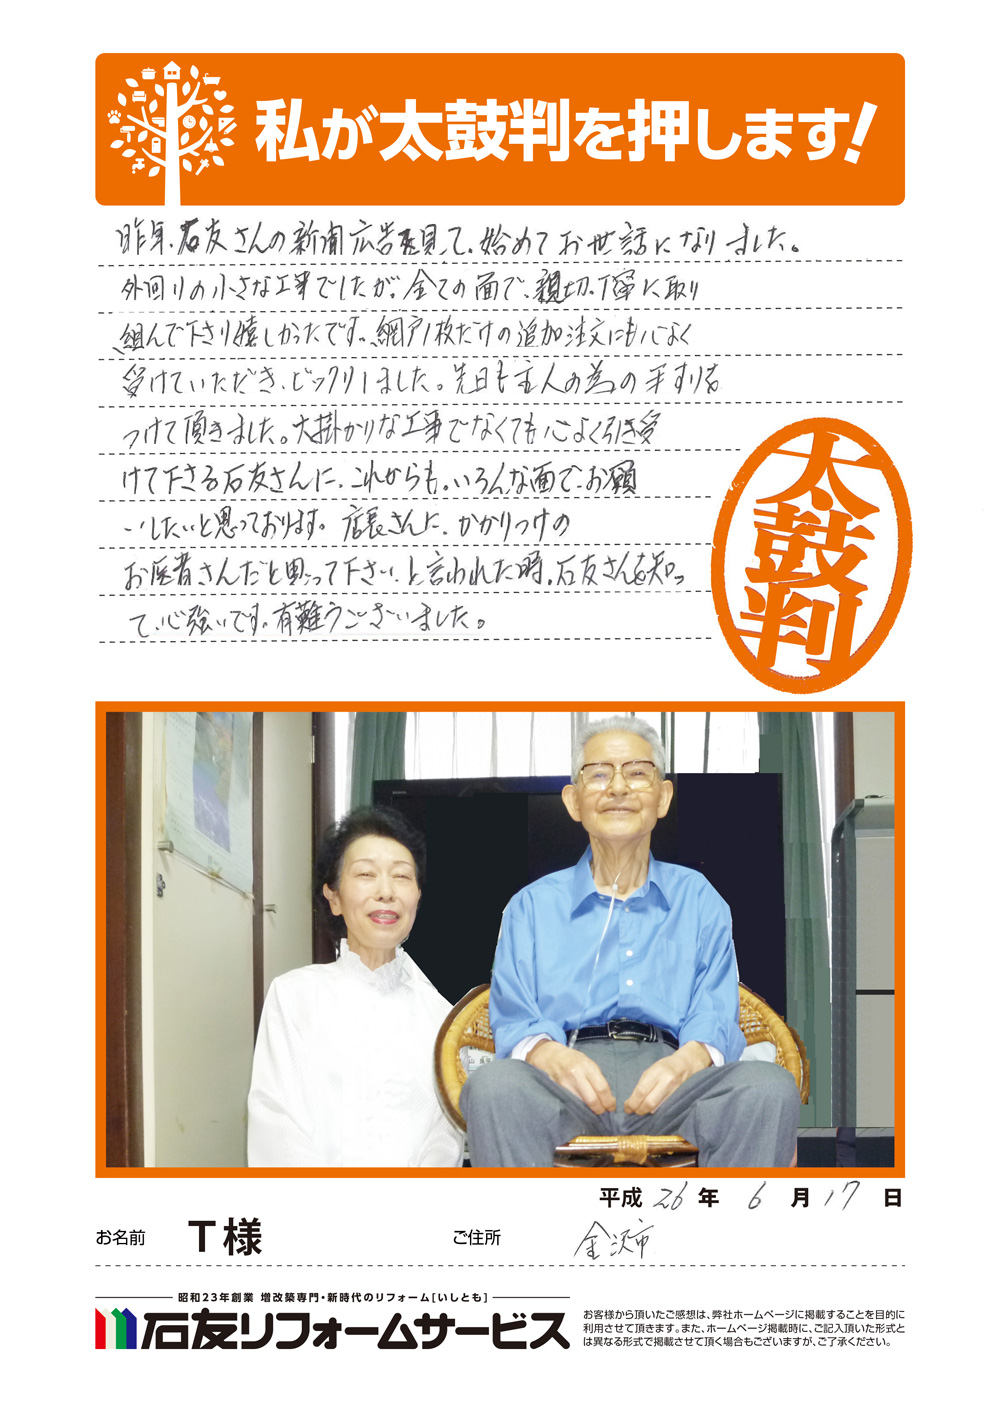 私が太鼓判を押します!
昨年、石友さんの新聞広告を見て、始めてお世話になりました。
外回りの小さな工事でしたが、全ての面で、親切、丁寧に取り
組んで下さり嬉しかったです。網戸1枚だけの追加注文にも心よく
受けていただき、ビックリしました。先日も主人の為の手すりを
つけて頂きました。大掛かりな工事でなくても心よく引き受
けて下さる石友さんに、これからも、いろんな面でお願
いしたいと思っております。店長さんに、かかりつけの
お医者さんだと思って下さい、と言われた時。石友さんを知っ
て、心強いです。有難うございました。
太鼓判
平成26年 6月17日
お名前 T様 ご住所 金沢市
昭和23年創業 増改築専門・新時代のリフォーム[いしとも]
石友リフォームサービス
お客様から頂いたご感想は、弊社ホームページに掲載することを目的に
利用させて頂きます。また、ホームページ掲載時に、ご記入頂いた形式と
は異なる形式で掲載させて頂く場合もございますが、ご了承ください。